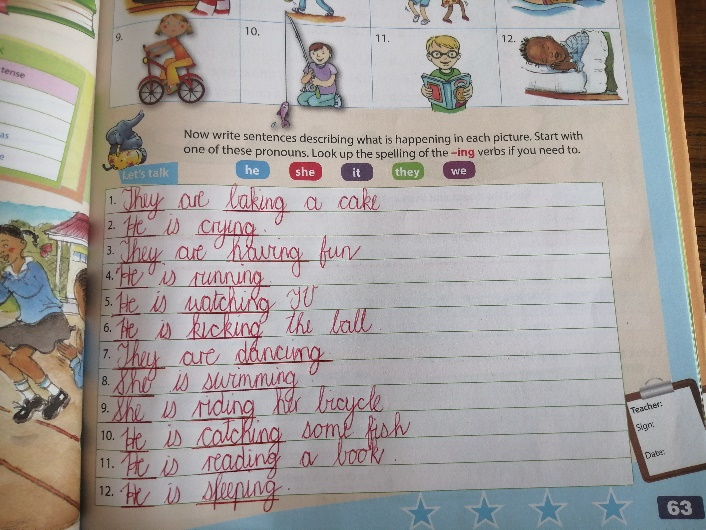 tense
as
e
9.
10.
11.
12.
Now write sentences describing what is happening in each picture. Start with
one of these pronouns. Look up the spelling of the -ing verbs if you need to.
Let's talk
he she it they we
1. They are baking a cake
2. He is crying.
3. They are having fun
4. He is running
5. He is watching TV
6. He is kicking the ball
7. They are dancing
8. She is swimming.
9. She is riding her bicycle
10. He is catching some fish
11. He is reading a book.
12. He is sleeping.
Teacher:
Sign:
Date:
63